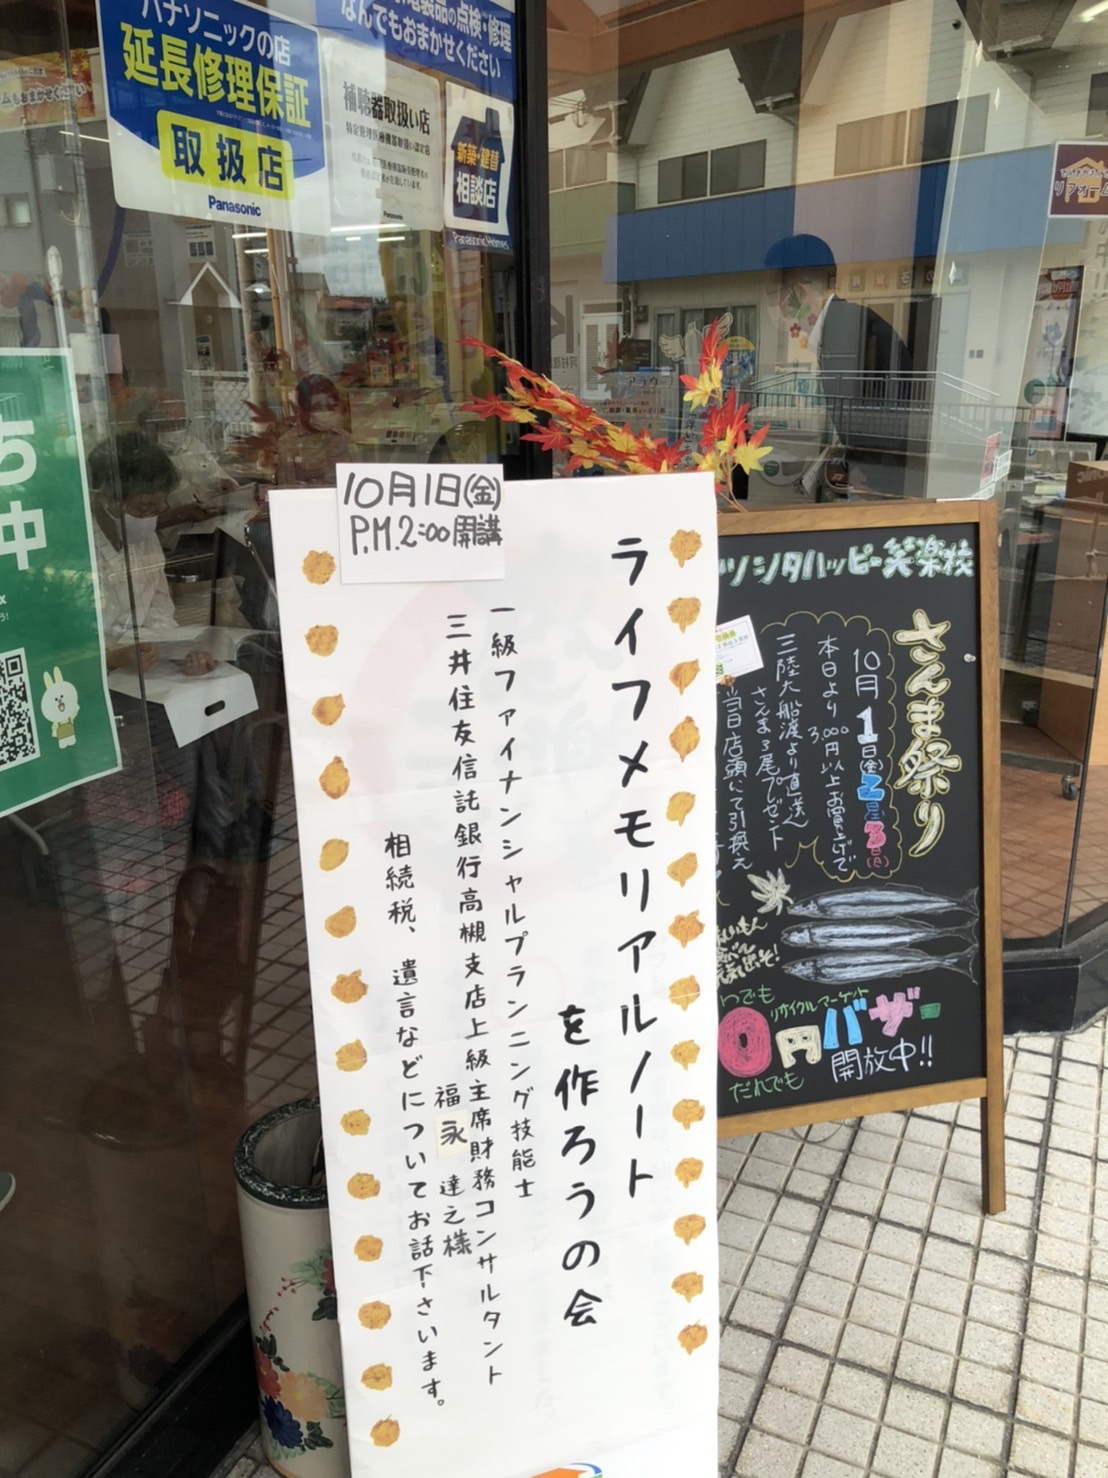 パナソニックの店
延長修理保証
取扱店
Panasonic
の点検・修理
なんでもおまかせください
補聴器取扱い店
特定管理医療機器取扱い認定店
Panasonic
新築・建替
相談店
Panasonic Homes
リフォーム
10月1日(金)
P.M.2:00開講
ライフメモリアルノート
を作ろうの会
一級ファイナンシャルプランニング技能士
三井住友信託銀行高槻支店上級主席財務コンサルタント
福永 達之様
相続税、遺言などについてお話下さいます。
ハッピー笑楽校
さんま祭り
10月1日(金)2日(土)3日(日)
本日より3,000円以上お買上げで
三陸大船渡より直送
さんま3尾プレゼント
当日店頭にて引換え
リサイクルマーケット
0円バザー
開放中!!
だれでも